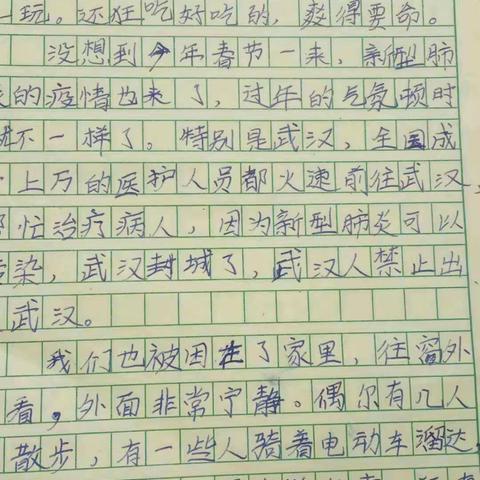 一玩。还狂吃好吃的，爽得要命。
没想到今年春节一来，新型肺
的疫情也来了，过年的气氛顿时
不一样了。特别是武汉，全国成
上万的医护人员都火速前往武汉，
忙治疗病人，因为新型肺炎可以
染，武汉封城了，武汉人禁止出
武汉。
我们也被困在了家里，往窗外
看，外面非常宁静。偶尔有几人
散步，有一些人骑着电动车溜达，